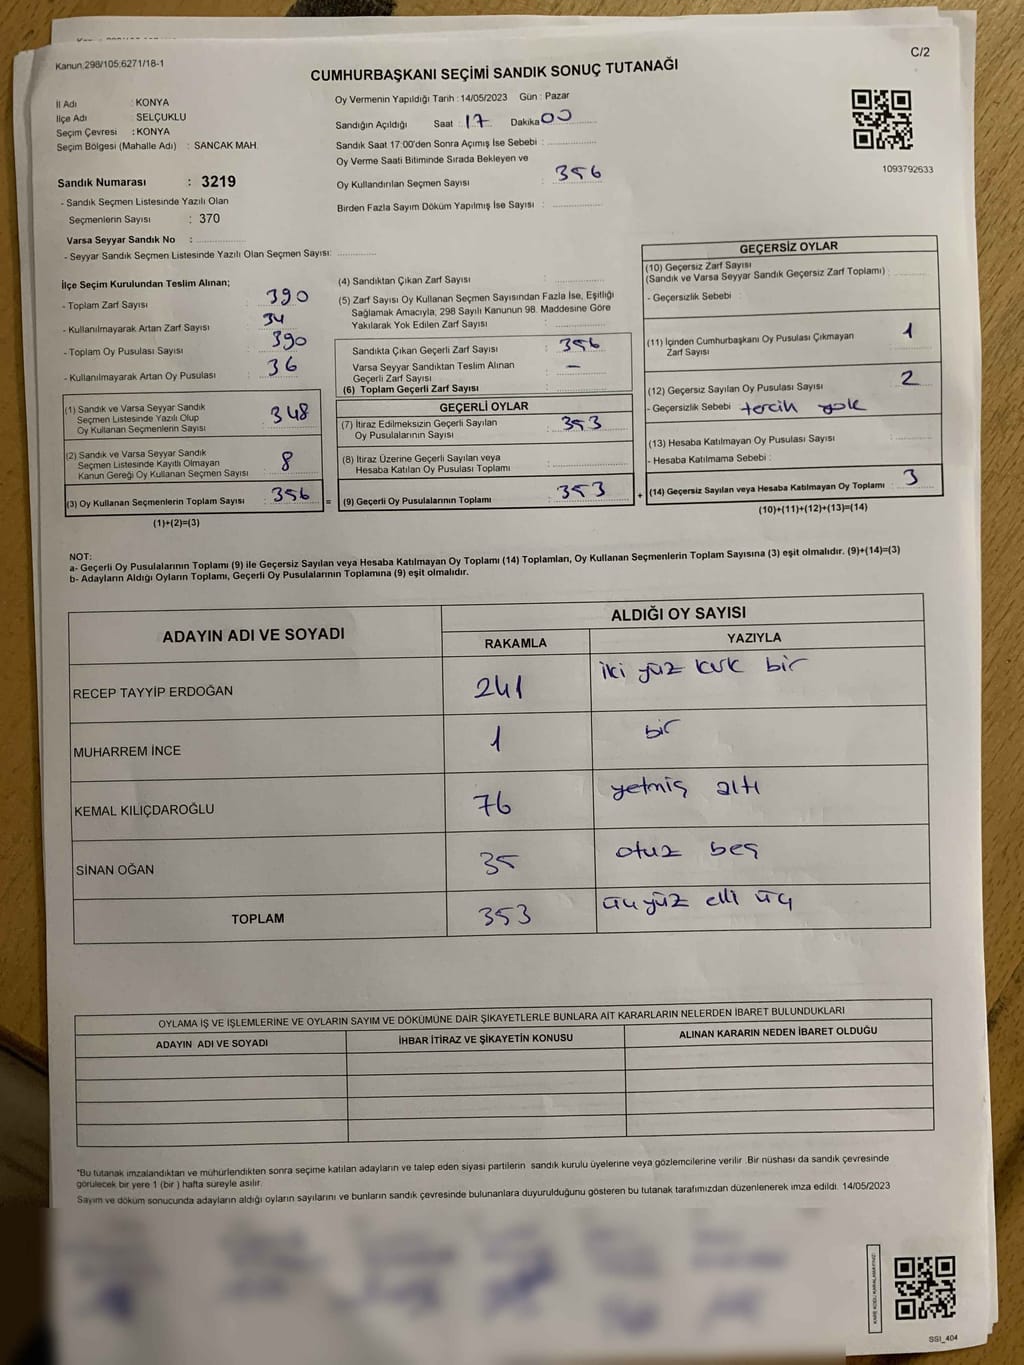 Kanun 298/105,6271/18-1
C/2
CUMHURBAŞKANI SEÇİMİ SANDIK SONUÇ TUTANAĞI
İl Adı : KONYA
İlçe Adı : SELÇUKLU
Seçim Çevresi : KONYA
Seçim Bölgesi (Mahalle Adı) : SANCAK MAH.
Sandık Numarası : 3219
- Sandık Seçmen Listesinde Yazılı Olan
Seçmenlerin Sayısı : 370
Varsa Seyyar Sandık No :
- Seyyar Sandık Seçmen Listesinde Yazılı Olan Seçmen Sayısı:
Oy Vermenin Yapıldığı Tarih : 14/05/2023 Gün : Pazar
Sandığın Açıldığı Saat : 17 Dakika 00
Sandık Saat 17:00'den Sonra Açımış İse Sebebi :
Oy Verme Saati Bitiminde Sırada Bekleyen ve
Oy Kullandırılan Seçmen Sayısı : 356
Birden Fazla Sayım Döküm Yapılmış İse Sayısı :
1093792633
İlçe Seçim Kurulundan Teslim Alınan;
- Toplam Zarf Sayısı : 390
- Kullanılmayarak Artan Zarf Sayısı : 34
- Toplam Oy Pusulası Sayısı : 390
- Kullanılmayarak Artan Oy Pusulası : 36
(1) Sandık ve Varsa Seyyar Sandık
Seçmen Listesinde Yazılı Olup
Oy Kullanan Seçmenlerin Sayısı : 348
(2) Sandık ve Varsa Seyyar Sandık
Seçmen Listesinde Kayıtlı Olmayan
Kanun Gereği Oy Kullanan Seçmen Sayısı : 8
(3) Oy Kullanan Seçmenlerin Toplam Sayısı : 356
(1)+(2)=(3)
(4) Sandıktan Çıkan Zarf Sayısı :
(5) Zarf Sayısı Oy Kullanan Seçmen Sayısından Fazla İse, Eşitliği
Sağlamak Amacıyla, 298 Sayılı Kanunun 98. Maddesine Göre
Yakılarak Yok Edilen Zarf Sayısı :
Sandıkta Çıkan Geçerli Zarf Sayısı : 356
Varsa Seyyar Sandıktan Teslim Alınan
Geçerli Zarf Sayısı : -
(6) Toplam Geçerli Zarf Sayısı :
GEÇERLİ OYLAR
(7) İtiraz Edilmeksizin Geçerli Sayılan
Oy Pusulalarının Sayısı : 353
(8) İtiraz Üzerine Geçerli Sayılan veya
Hesaba Katılan Oy Pusulası Toplamı :
= (9) Geçerli Oy Pusulalarının Toplamı : 353
GEÇERSİZ OYLAR
(10) Geçersiz Zarf Sayısı
(Sandık ve Varsa Seyyar Sandık Geçersiz Zarf Toplamı) :
- Geçersizlik Sebebi :
(11) İçinden Cumhurbaşkanı Oy Pusulası Çıkmayan
Zarf Sayısı : 1
(12) Geçersiz Sayılan Oy Pusulası Sayısı : 2
- Geçersizlik Sebebi : tercih yok
(13) Hesaba Katılmayan Oy Pusulası Sayısı :
- Hesaba Katılmama Sebebi :
+ (14) Geçersiz Sayılan veya Hesaba Katılmayan Oy Toplamı : 3
(10)+(11)+(12)+(13)=(14)
NOT:
a- Geçerli Oy Pusulalarının Toplamı (9) ile Geçersiz Sayılan veya Hesaba Katılmayan Oy Toplamı (14) Toplamları, Oy Kullanan Seçmenlerin Toplam Sayısına (3) eşit olmalıdır. (9)+(14)=(3)
b- Adayların Aldığı Oyların Toplamı, Geçerli Oy Pusulalarının Toplamına (9) eşit olmalıdır.
ADAYIN ADI VE SOYADI
ALDIĞI OY SAYISI
RAKAMLA YAZIYLA
RECEP TAYYİP ERDOĞAN 241 iki yüz kırk bir
MUHARREM İNCE 1 bir
KEMAL KILIÇDAROĞLU 76 yetmiş altı
SİNAN OĞAN 35 otuz beş
TOPLAM 353 üç yüz elli üç
OYLAMA İŞ VE İŞLEMLERİNE VE OYLARIN SAYIM VE DÖKÜMÜNE DAİR ŞİKAYETLERLE BUNLARA AİT KARARLARIN NELERDEN İBARET BULUNDUKLARI
ADAYIN ADI VE SOYADI İHBAR İTİRAZ VE ŞİKAYETİN KONUSU ALINAN KARARIN NEDEN İBARET OLDUĞU
*Bu tutanak imzalandıktan ve mühürlendikten sonra seçime katılan adayların ve talep eden siyasi partilerin sandık kurulu üyelerine veya gözlemcilerine verilir .Bir nüshası da sandık çevresinde
görülecek bir yere 1 (bir ) hafta süreyle asılır.
Sayım ve döküm sonucunda adayların aldığı oyların sayılarını ve bunların sandık çevresinde bulunanlara duyurulduğunu gösteren bu tutanak tarafımızdan düzenlenerek imza edildi. 14/05/2023
KARE KODU KARALAMAYINIZ
SSI_404